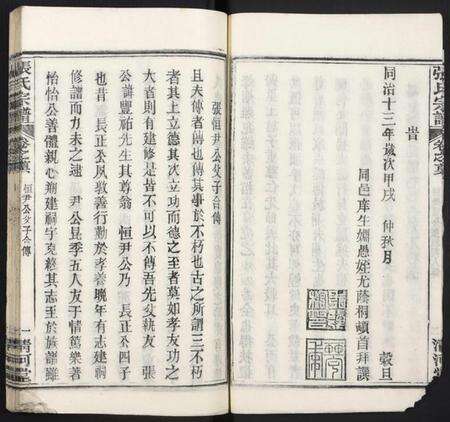 張氏宗譜
旹
同治十三年歲次甲戌 仲秋月 穀旦
同邑庠生姻愚姪尤蔭桐頓首拜譔
清河堂
張恒尹公父子合傳
且夫傳者傳也傳其事於不朽也古之所謂三不朽
者其上立德其次立功而德之至者莫如孝友功之
大者則有建修是皆不可以不傳吾先父執友 張
公諱豐祐先生其尊翁 恒尹公乃 長正公四子
也昔 長正公夙敦善行勤於孝養晚年有志建祠
修譜而力未之逮 尹公昆季五人友于情篤樂著
怡怡公善體親心剏建祠宇克終其志至於族譜雖
張氏宗譜
恒尹公父子合傳
一 清河堂